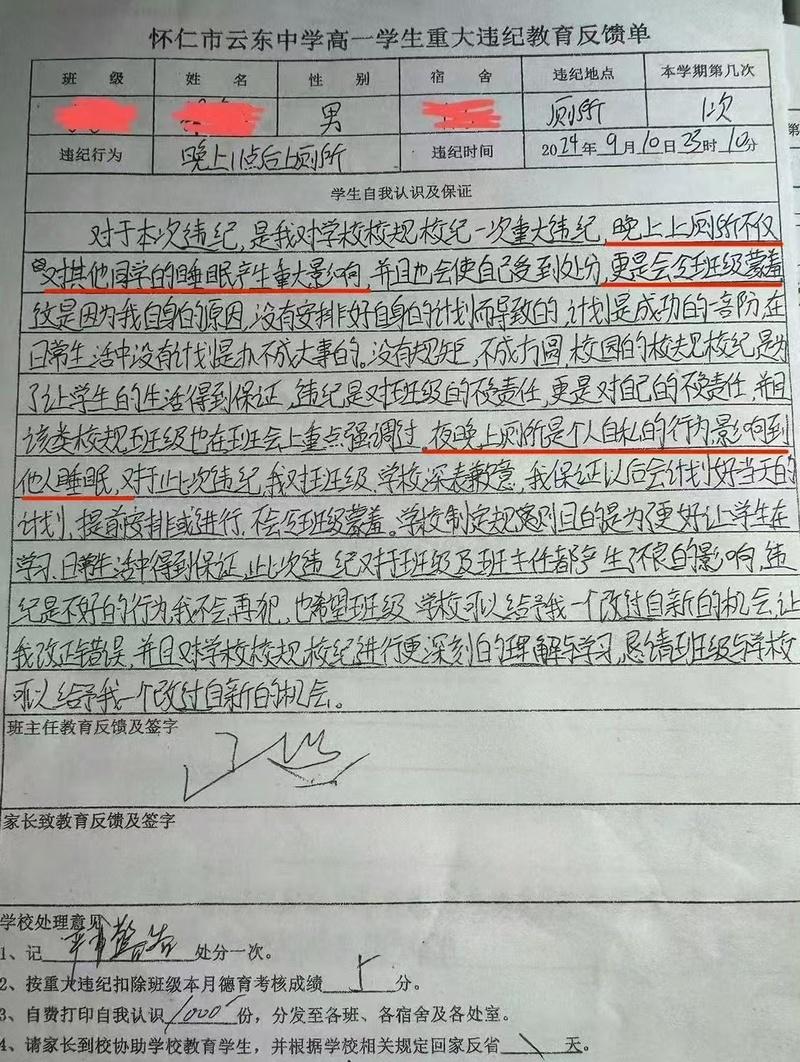 怀仁市云东中学高一学生重大违纪教育反馈单
班 级 姓 名 性 别 宿 舍 违纪地点 本学期第几次
男 厕所 1次
违纪行为 晚上11点后上厕所 违纪时间 2024年9月10日23时10分
学生自我认识及保证
对于本次违纪,是我对学校校规校纪一次重大违纪,晚上上厕所不仅
对其他同学的睡眠产生重大影响,并且也会使自己受到处分,更是会令班级蒙羞
这是因为我自身的原因,没有安排好自身的计划而导致的,计划是成功的一部防,在
日常生活中没有计划是办不成大事的。没有规矩,不成方圆,校园的校规校纪是为
了让学生的生活得到保证,违纪是对班级的不负责任,更是对自己的不负责任,并且
该类校规班级也在班会上重点强调过,夜晚上厕所是个人自私的行为,影响到
他人睡眠,对于此次违纪,我对班级、学校深表歉意,我保证以后会计划好当天的
计划,提前安排或进行,不会令班级蒙羞。学校制定规则目的是为了更好让学生在
学习、日常生活中得到保证,此次违纪对于班级及班主任都产生了不良的影响,违
纪是不好的行为,我不会再犯,也希望班级、学校可以给予我一个改过自新的机会,让
我改正错误,并且对学校校规、校纪进行更深刻的理解与学习,恳请班级与学校
可以给予我一个改过自新的机会。
班主任教育反馈及签字
家长致教育反馈及签字
学校处理意见
1、记 警告 处分一次。
2、按重大违纪扣除班级本月德育考核成绩 5 分。
3、自费打印自我认识 1000 份,分发至各班、各宿舍及各处室。
4、请家长到校协助学校教育学生,并根据学校相关规定回家反省 \ 天。